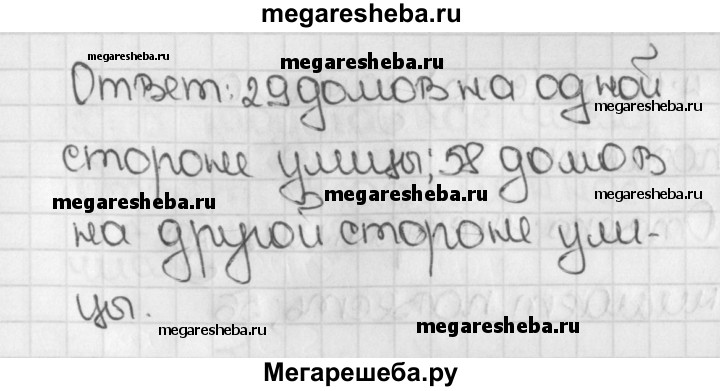 megaresheba.ru
megaresheba.ru
megaresheba.ru
Ответ: 29 домов на одной
megaresheba.ru
стороне улицы; 58 домов
megaresheba.ru
megaresheba.ru
megaresheba.ru
на другой стороне ули-
цы.
megaresheba.ru
megaresheba.ru
megaresheba.ru
Мегарешеба.ру